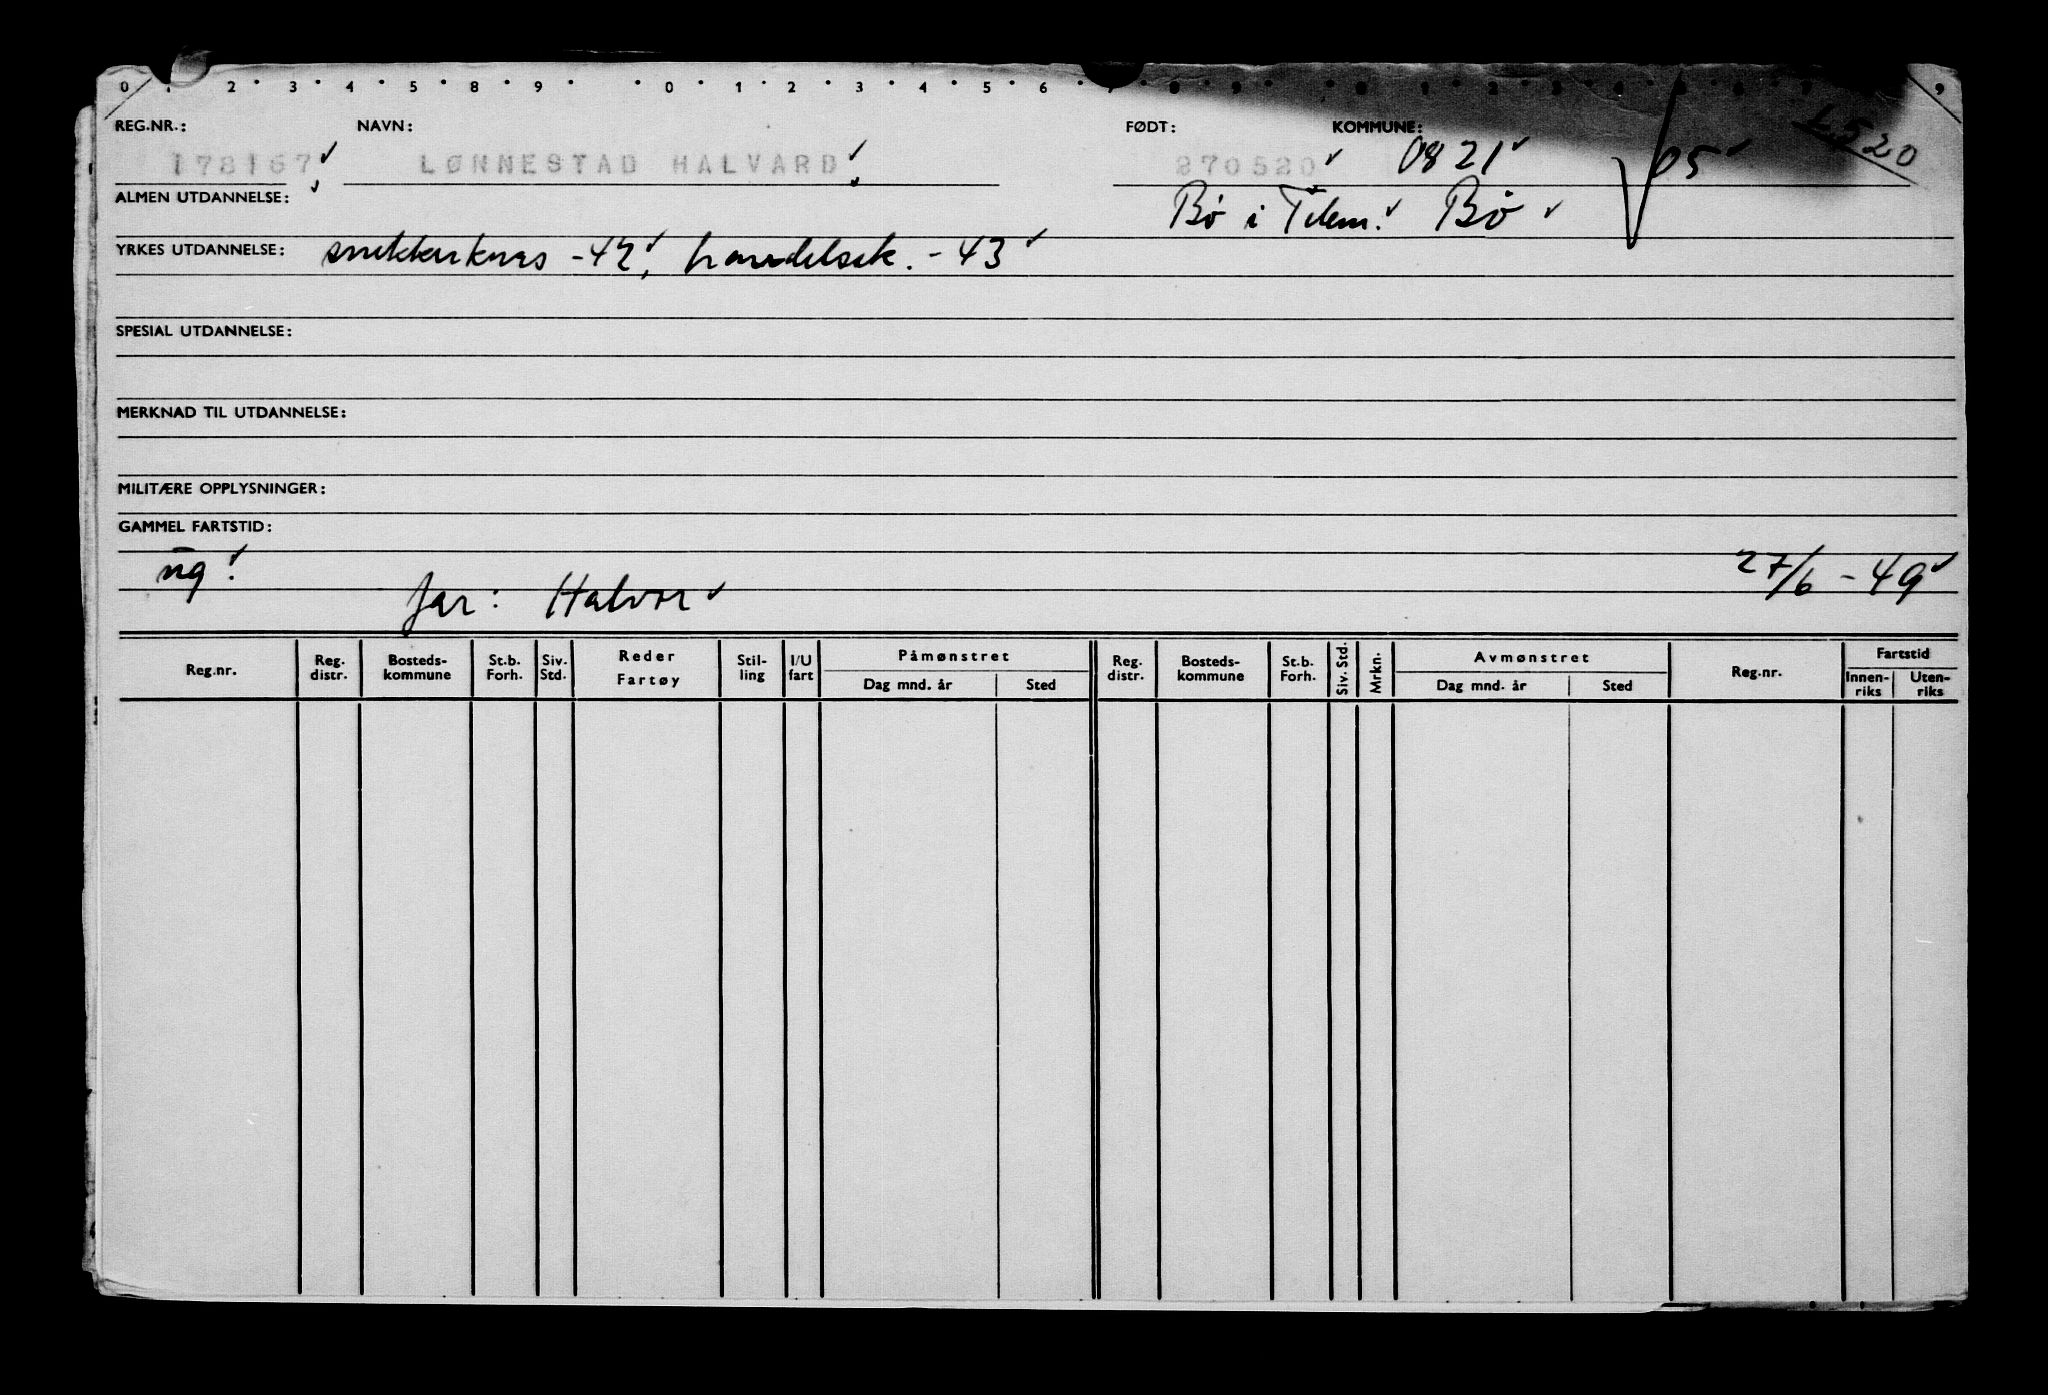 0 . 2 3 4 5 8 9 . 0 1 2 3 4 5 6 7 8 9 . 0 1 2 3 4 5 6 7 8 9
REG.NR.: NAVN: FØDT: KOMMUNE: 1520
178167 LØNNESTAD HALVARD 270520 0821 05
ALMEN UTDANNELSE: Bø i Telem. Bø
YRKES UTDANNELSE: snekkerkurs -42, handelssk. -43
SPESIAL UTDANNELSE:
MERKNAD TIL UTDANNELSE:
MILITÆRE OPPLYSNINGER:
GAMMEL FARTSTID:
ug! 27/6 - 49
far: Halvor
Reg.nr. Reg. distr. Bosteds-kommune St.b. Forh. Siv. Std. Reder Fartøy Stil-ling I/U fart Påmønstret Dag mnd. år Sted Reg. distr. Bosteds-kommune St.b. Forh. Siv. Std. Mrkn. Avmønstret Dag mnd. år Sted Reg.nr. Fartstid Innen-riks Uten-riks